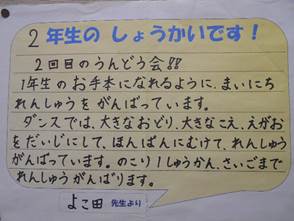 2年生の しょうかいです!
2回目のうんどう会!!
1年生の お手本になれるように、まいにち
れんしゅうを がんばっています。
ダンスでは、大きなおどり、大きなこえ、えがお
をだいじにして、ほんばんにむけて、れんしゅう
がんばっています。のこり1しゅうかん、さいごまで
れんしゅうがんばります。
よこ田 先生より